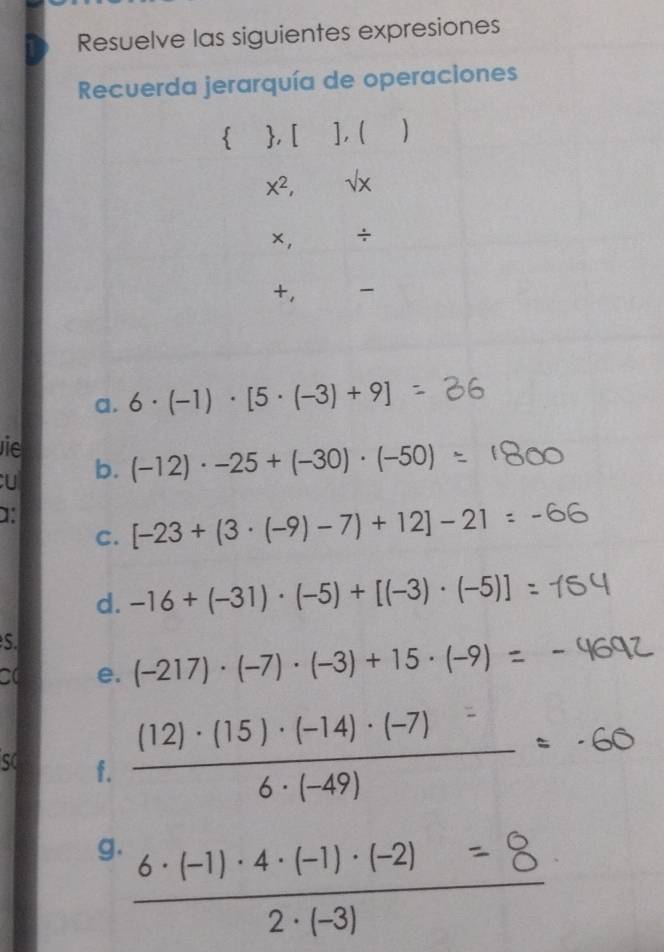 1 Resuelve las siguientes expresiones
Recuerda jerarquía de operaciones
{ }, [ ], ( )
x², √x
×, ÷
+, −
a. 6 · (−1) · [5 · (−3) + 9] = 36
b. (−12) · −25 + (−30) · (−50) = 1800
c. [−23 + (3 · (−9) − 7) + 12] − 21 = -66
d. −16 + (−31) · (−5) + [(−3) · (−5)] = 154
e. (−217) · (−7) · (−3) + 15 · (−9) = - 4692
(12) · (15 ) · (−14) · (−7) =
f. = -60
6 · (−49)
g. 6 · (−1) · 4 · (−1) · (−2) = 8
2 · (−3)